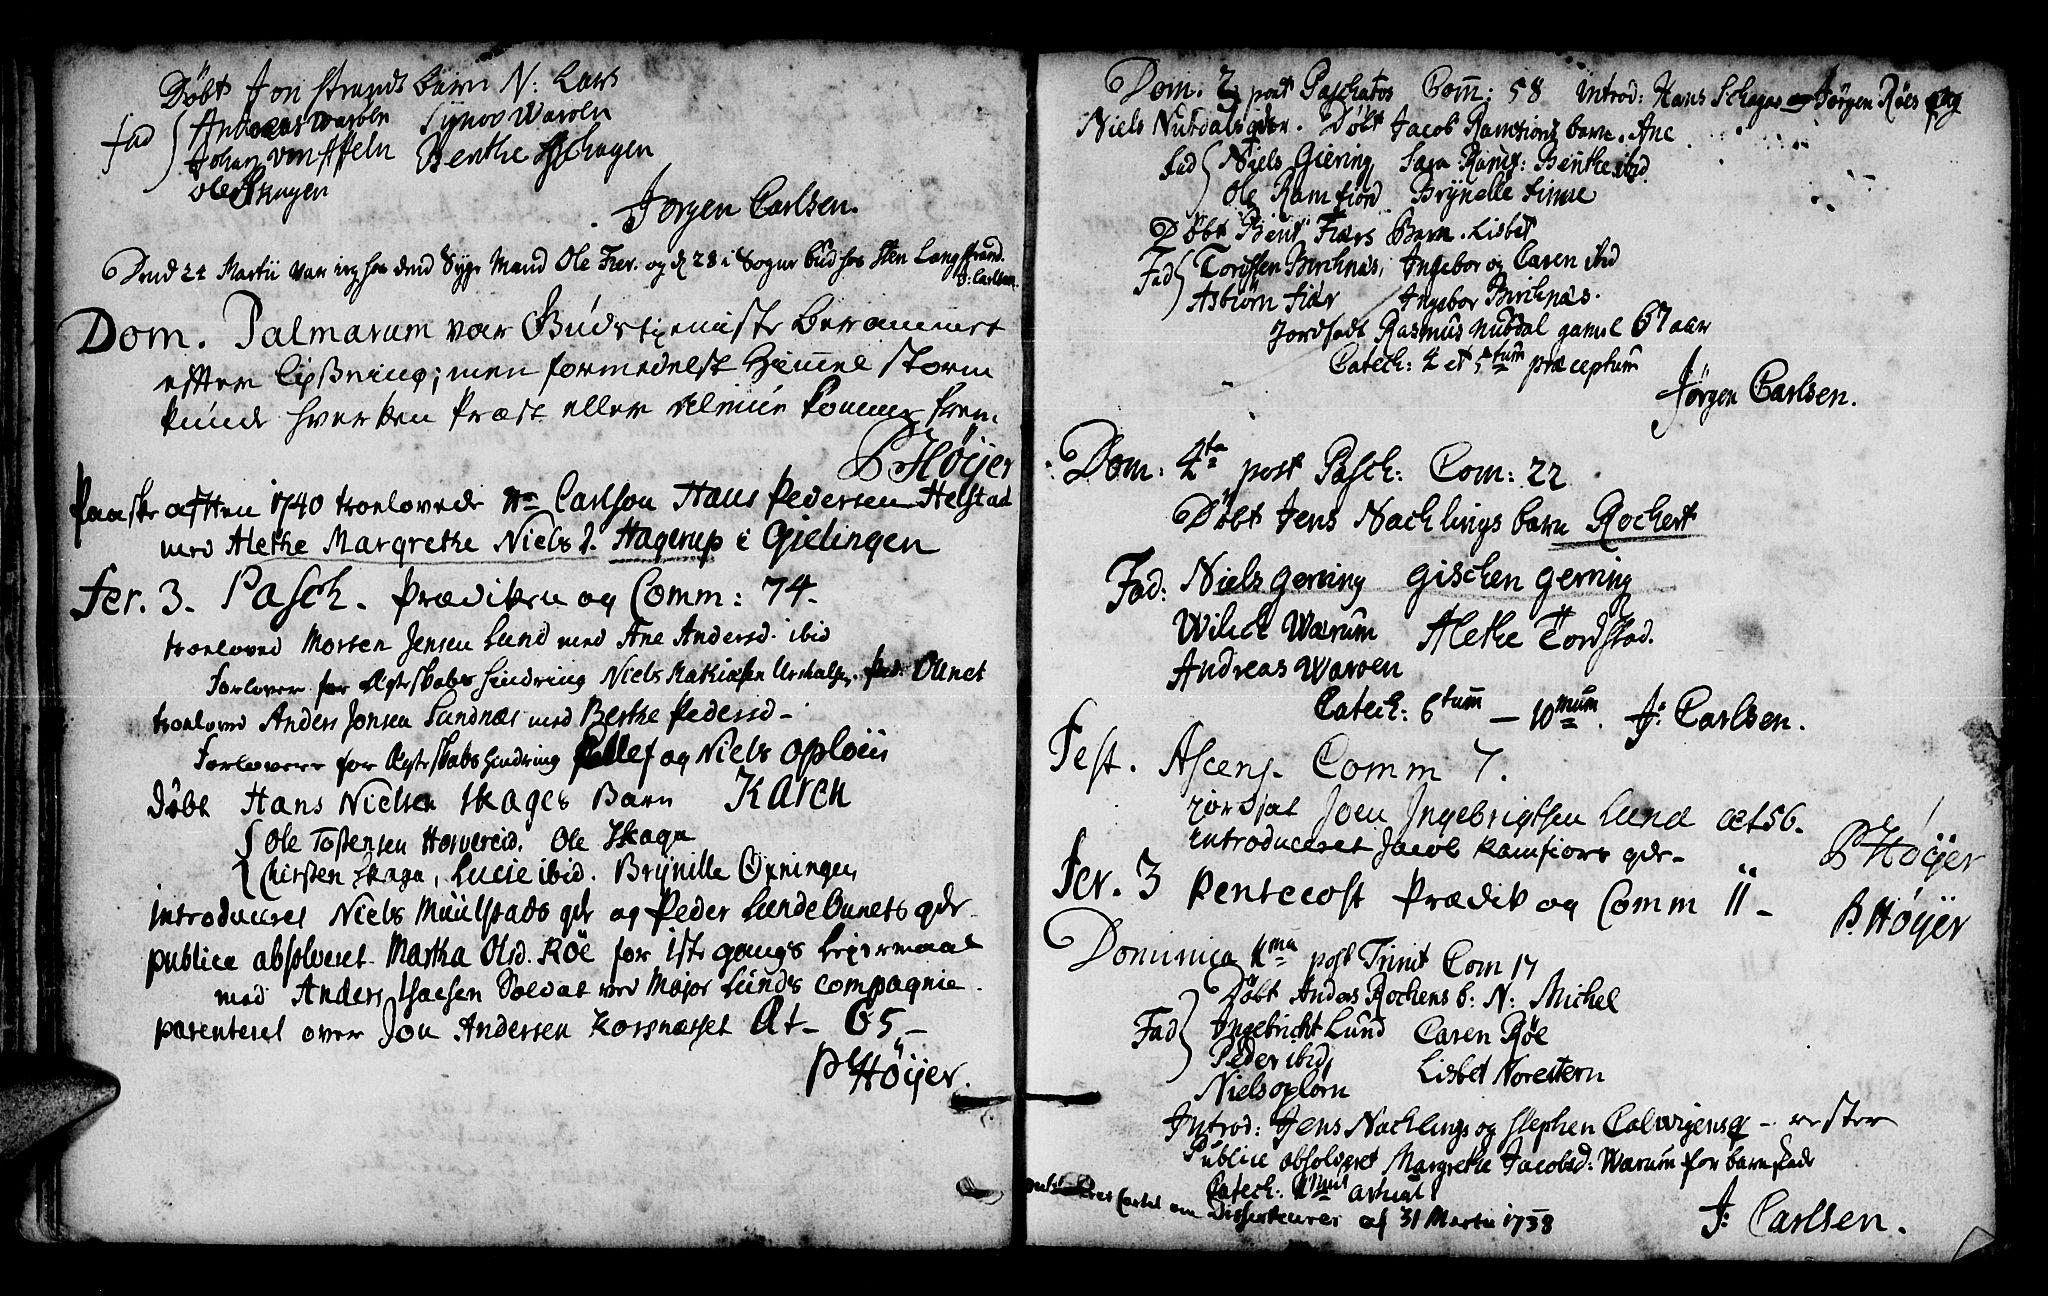 Döbt Jon Strands barn N: Lars
Fad Andreas Waroen Synov Waroen
Johan von Apeln Benthe Schagen
Ole Skagen
Jørgen Carlsen.
Dend 22 Martii var jeg hos dend Syge Mand Ole Fier. og d 28 i Sogne bud hos Sten Langstrand.
J: Carlsen.
Dom. Palmarum var Gudstieniste berammet
effter Lysning; men formedelst Himmel storm
kunde hverken Præst eller Almue komme frem
P Høyer
Paaske aften 1740 troelovede Hr Carlson Hans Pedersen Helstad
med Alethe Margrethe Niels D. Hagerup i Gielingen
Fer. 3. Pasch. Prædiken og Comm: 74.
troeloved Morten Jensen Lund med Ane Andersd. ibid
Forlover for Ægteskabs hindring Niels Mathiasen Ped: Ounet
troeloved Anders Jonsen Sundnæs med Berthe Pedersd-
Forlovere for Ægteskabs hindring og Niels Opløii
Døbt Hans Nielsen Skages Barn Karen
Ole Tostensen Horvereid. Ole Skage
Chirsten Skage, Lucie ibid. Brynille Oxningen
introduceret Niels Muulstads qdr og Peder Lunde Ounets qdr.
publice absolveret Martha Olsd. Röe for 1ste gangs leyermaal
med Anders Isacsen Soldat ved Major Lunds compagnie.
parenteret over Jon Andersen Korsnæsset Æt- 65-
P Høyer.
Dom. 3 post Paschatos Com: 58 Introd: Hans Schages og Jørgen Röes qdr
Niels Nubdals qdr. Döbt Jacob Ramfiords barn. Ane
Fad Niels Giering Sara Ramf: Benthe ibid.
Ole Ramfiord Brynelle Finne
Döbt Bent Fiærs Barn. Lisbet
Fad Torsten Birchnæs, Ingebor og Caren ibid
Asbiörn Fiær Ingebor Birchnæs.
Jordfæst Rasmus Nubdal gamel 67 aar
Catech: 4 et 5tum præceptum
Jørgen Carlsen.
Dom: 4ta post Pasch: Com: 22
Döbt Jens Nachlings barn Rochert
Fad: Niels Gerving Gischen Gerving
Wilich Warum Alethe Tordstad.
Andreas Waroen
Catech: 6tum - 10mum. J: Carlsen.
Fest. Ascens. Comm 7.
jordsat Joen Ingebrigtsen Lund æt 56.
introduceret Jacob Ramfiors qdr-
P Høyer
Fer. 3 Pentecost Prædik og Comm 11-
P. Høyer
Dominica 1ma post Trinit Com 17
Döbt Anders Rochens b: N: Michel
Fad Ingebricht Lund Caren Röe
Peder ibid, Lisbet Norestern
Niels oplorn
Introd: Jens Nachlings og Stephen Calvigens q - vester
Publice absolveret Margrethe Jacobsd: Warum for barnefade
Catech: 1mus
Cartel om Disserteurer af 31 Martii 1738
J: Carlsen.